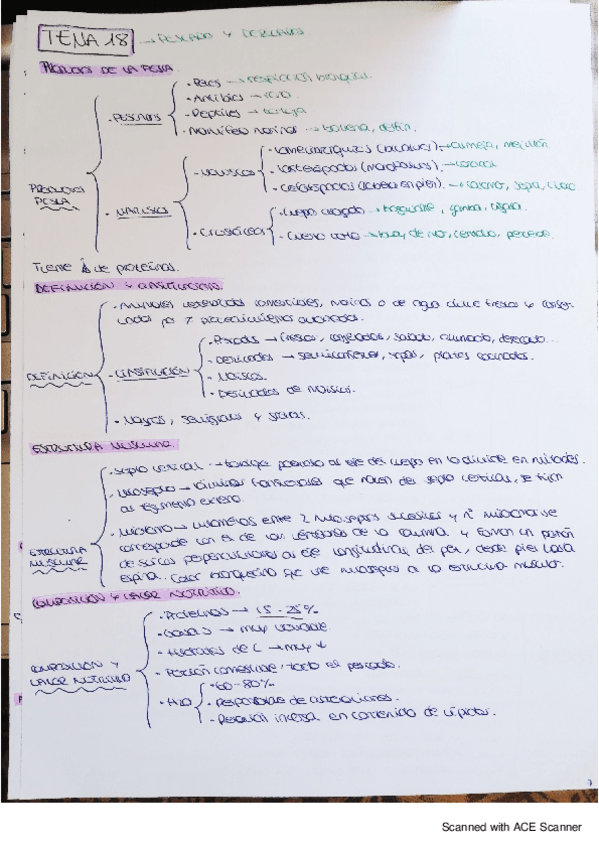 TEMA 18 → PESCADO Y DERIVADOS
PRODUCTOS DE LA PESCA
· Peces →
· PESCADOS · Anfibios → rana
· Reptiles → tortuga
· Mamíferos marinos → ballena, delfín.
PRODUCTOS PESCA
· MARISCOS
· MOLUSCOS · Lamelibranquios (bivalvos). → almeja, mejillón
· Gasterópodos → caracol
· Cefalópodos → calamar, sepia,
· Crustáceos · Cuerpo alargado → gamba, cigala.
· Cuerpo corto → buey de mar, centollo, percebe.
Tiene ↓ de proteínas.
DEFINICIÓN Y CLASIFICACIÓN
· Animales vertebrados comestibles, marinos o de agua dulce frescos y conservados por procedimientos autorizados.
DEFINICIÓN · CLASIFICACIÓN · Pescados → frescos, congelados, salado, ahumado, desecado...
· Derivados → semiconservas, sopas, platos cocinados.
· Moluscos.
· Derivados de moluscos.
· Magros, semigrasos y grasos.
ESTRUCTURA MUSCULAR
· Septo vertical → tabique paralelo al eje del cuerpo en lo divide en mitades.
· Miosepto → láminas transversales que nacen del septo vertical, se unen
al tegumento externo.
· Miótomo → miómeros entre 2 mioseptos sucesivos y nº miómeros se
ESTRUCTURA MUSCULAR corresponde con el de las vértebras de la columna. Y forman un patrón
de surcos perpendiculares al eje longitudinal del pez, desde piel hasta
espina. Color blanquecino que une mioseptos a la estructura muscular.
COMPOSICIÓN Y VALOR NUTRITIVO.
· Proteínas → 15-25%
· Grasas → muy variable
· Hidratos de C → muy ↓
COMPOSICIÓN Y VALOR NUTRITIVO · Porción comestible: todo el pescado.
· H2O · 60-80%
· Responsable de alteraciones.
· Relación inversa en contenido de lípidos.
Scanned with ACE Scanner